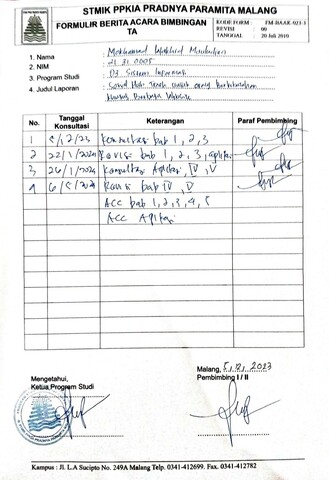 STMIK PPKIA PRADNYA PARAMITA MALANG
FORMULIR BERITA ACARA BIMBINGAN TA
KODE FORM : FM-BAAK-023-1
REVISI : 00
TANGGAL : 20 Juli 2010
1. Nama : Mohammad
2. NIM : 21.31.0005
3. Program Studi : D3 Sistem Informasi
4. Judul Laporan :
Berbasis Website
No. Tanggal Konsultasi Keterangan Paraf Pembimbing
1 5/12/23 Konsultasi bab 1, 2, 3
2 22/1/2024 Revisi bab 1, 2, 3, aplikasi
3 26/1/2024 Konsultasi Aplikasi, IV, V
4 6/5/2024 Revisi bab IV, V
ACC bab 1, 2, 3, 4, 5
ACC Aplikasi
Malang, 2023
Mengetahui,
Ketua Program Studi
Pembimbing I / II
Kampus : Jl. L.A Sucipto No. 249A Malang Telp. 0341-412699. Fax. 0341-412782